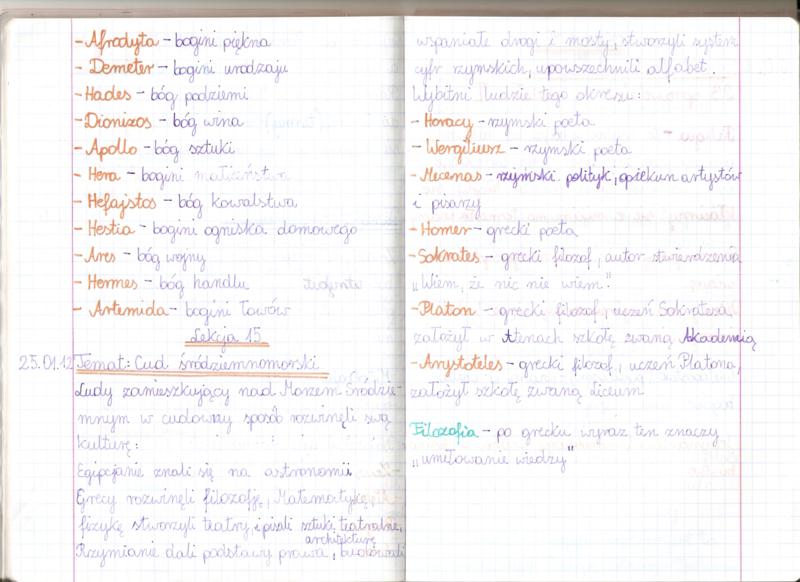 - Afrodyta - bogini piękna
- Demeter - bogini urodzaju
- Hades - bóg podziemi
- Dionizos - bóg wina
- Apollo - bóg sztuki
- Hera - bogini małżeństw
- Hefajstos - bóg kowalstwa
- Hestia - bogini ogniska domowego
- Ares - bóg wojny
- Hermes - bóg handlu
- Artemida - bogini łowów
Lekcja 15
25.01.12 Temat: Cud śródziemnomorski
Ludy zamieszkujący nad Morzem Śródzie-
mnym w cudowny sposób rozwinęli swą
kulturę:
Egipcjanie znali się na astronomii
Grecy rozwinęli filozofję, Matematykę,
fizykę stworzyli teatry, i pisali sztuki teatralne,
architekturę
Rzymianie dali podstawy prawa, budowali
wspaniałe drogi i mosty, stworzyli system
cyfr rzymskich, upowszechnili alfabet.
Wybitni ludzie tego okresu:
- Horacy - rzymski poeta
- Wergiliusz - rzymski poeta
- Mecenas - rzymski polityk, opiekun artystów
i pisarzy
- Homer - grecki poeta
- Sokrates - grecki filozof, autor stwierdzenia
„Wiem, że nic nie wiem"
- Platon - grecki filozof, uczeń Sokratesa,
założył w Atenach szkołę zwaną Akademią
- Arystoteles - grecki filozof, uczeń Platona,
założył szkołę zwaną Liceum
Filozofia - po grecku wyraz ten znaczy
„umiłowanie wiedzy"